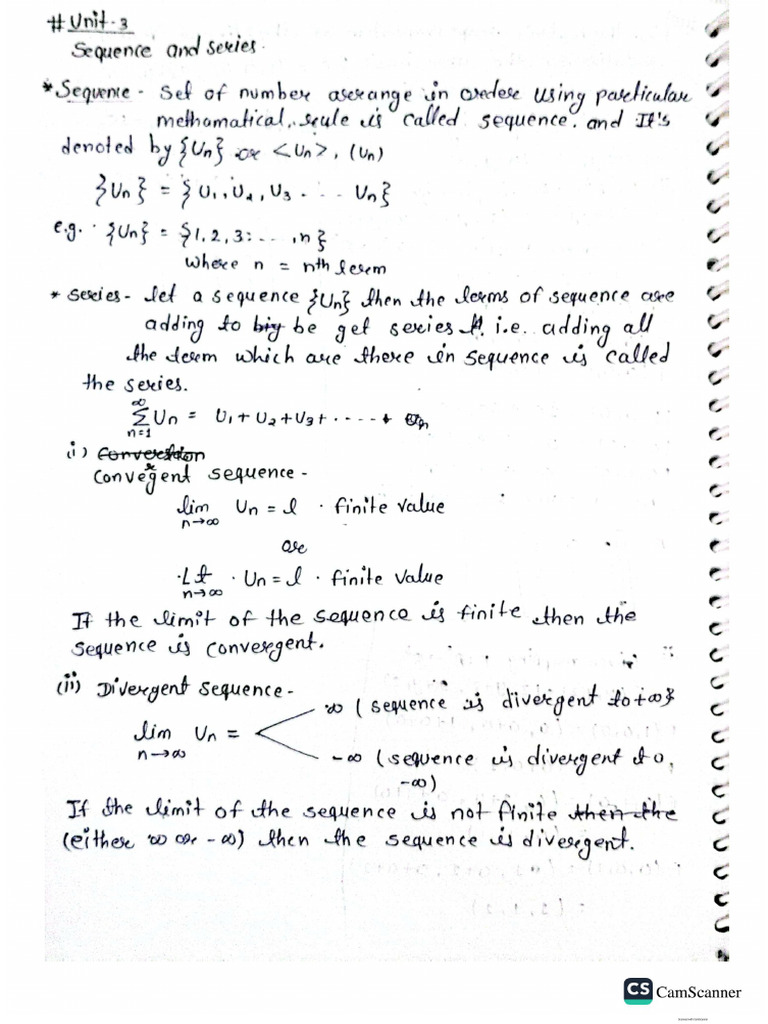 # Unit-3
Sequence and series.
* Sequence - Set of number arrange in order using particular
methamatical, rule is called sequence. and It's
denoted by {Un} or <Un>, (Un)
{Un} = { U1, U2, U3 . . . . Un}
e.g. {Un} = {1, 2, 3 . . . . , n}
where n = nth term
* series - let a sequence {Un} then the terms of sequence are
adding to big be get series i.e. adding all
the term which are there in sequence is called
the series.
∞
∑ Un = U1 + U2 + U3 + . . . . . +
n=1
(i) Conversion
Convergent sequence -
lim Un = l . finite value
n→∞
or
Lt . Un = l . finite value
n→∞
If the limit of the sequence is finite then the
sequence is convergent.
(ii) Divergent sequence -
∞ ( sequence is divergent to +∞}
lim Un =
n→∞
-∞ (sequence is divergent to,
-∞)
If the limit of the sequence is not finite then the
(either ∞ or -∞) then the sequence is divergent.
CS CamScanner